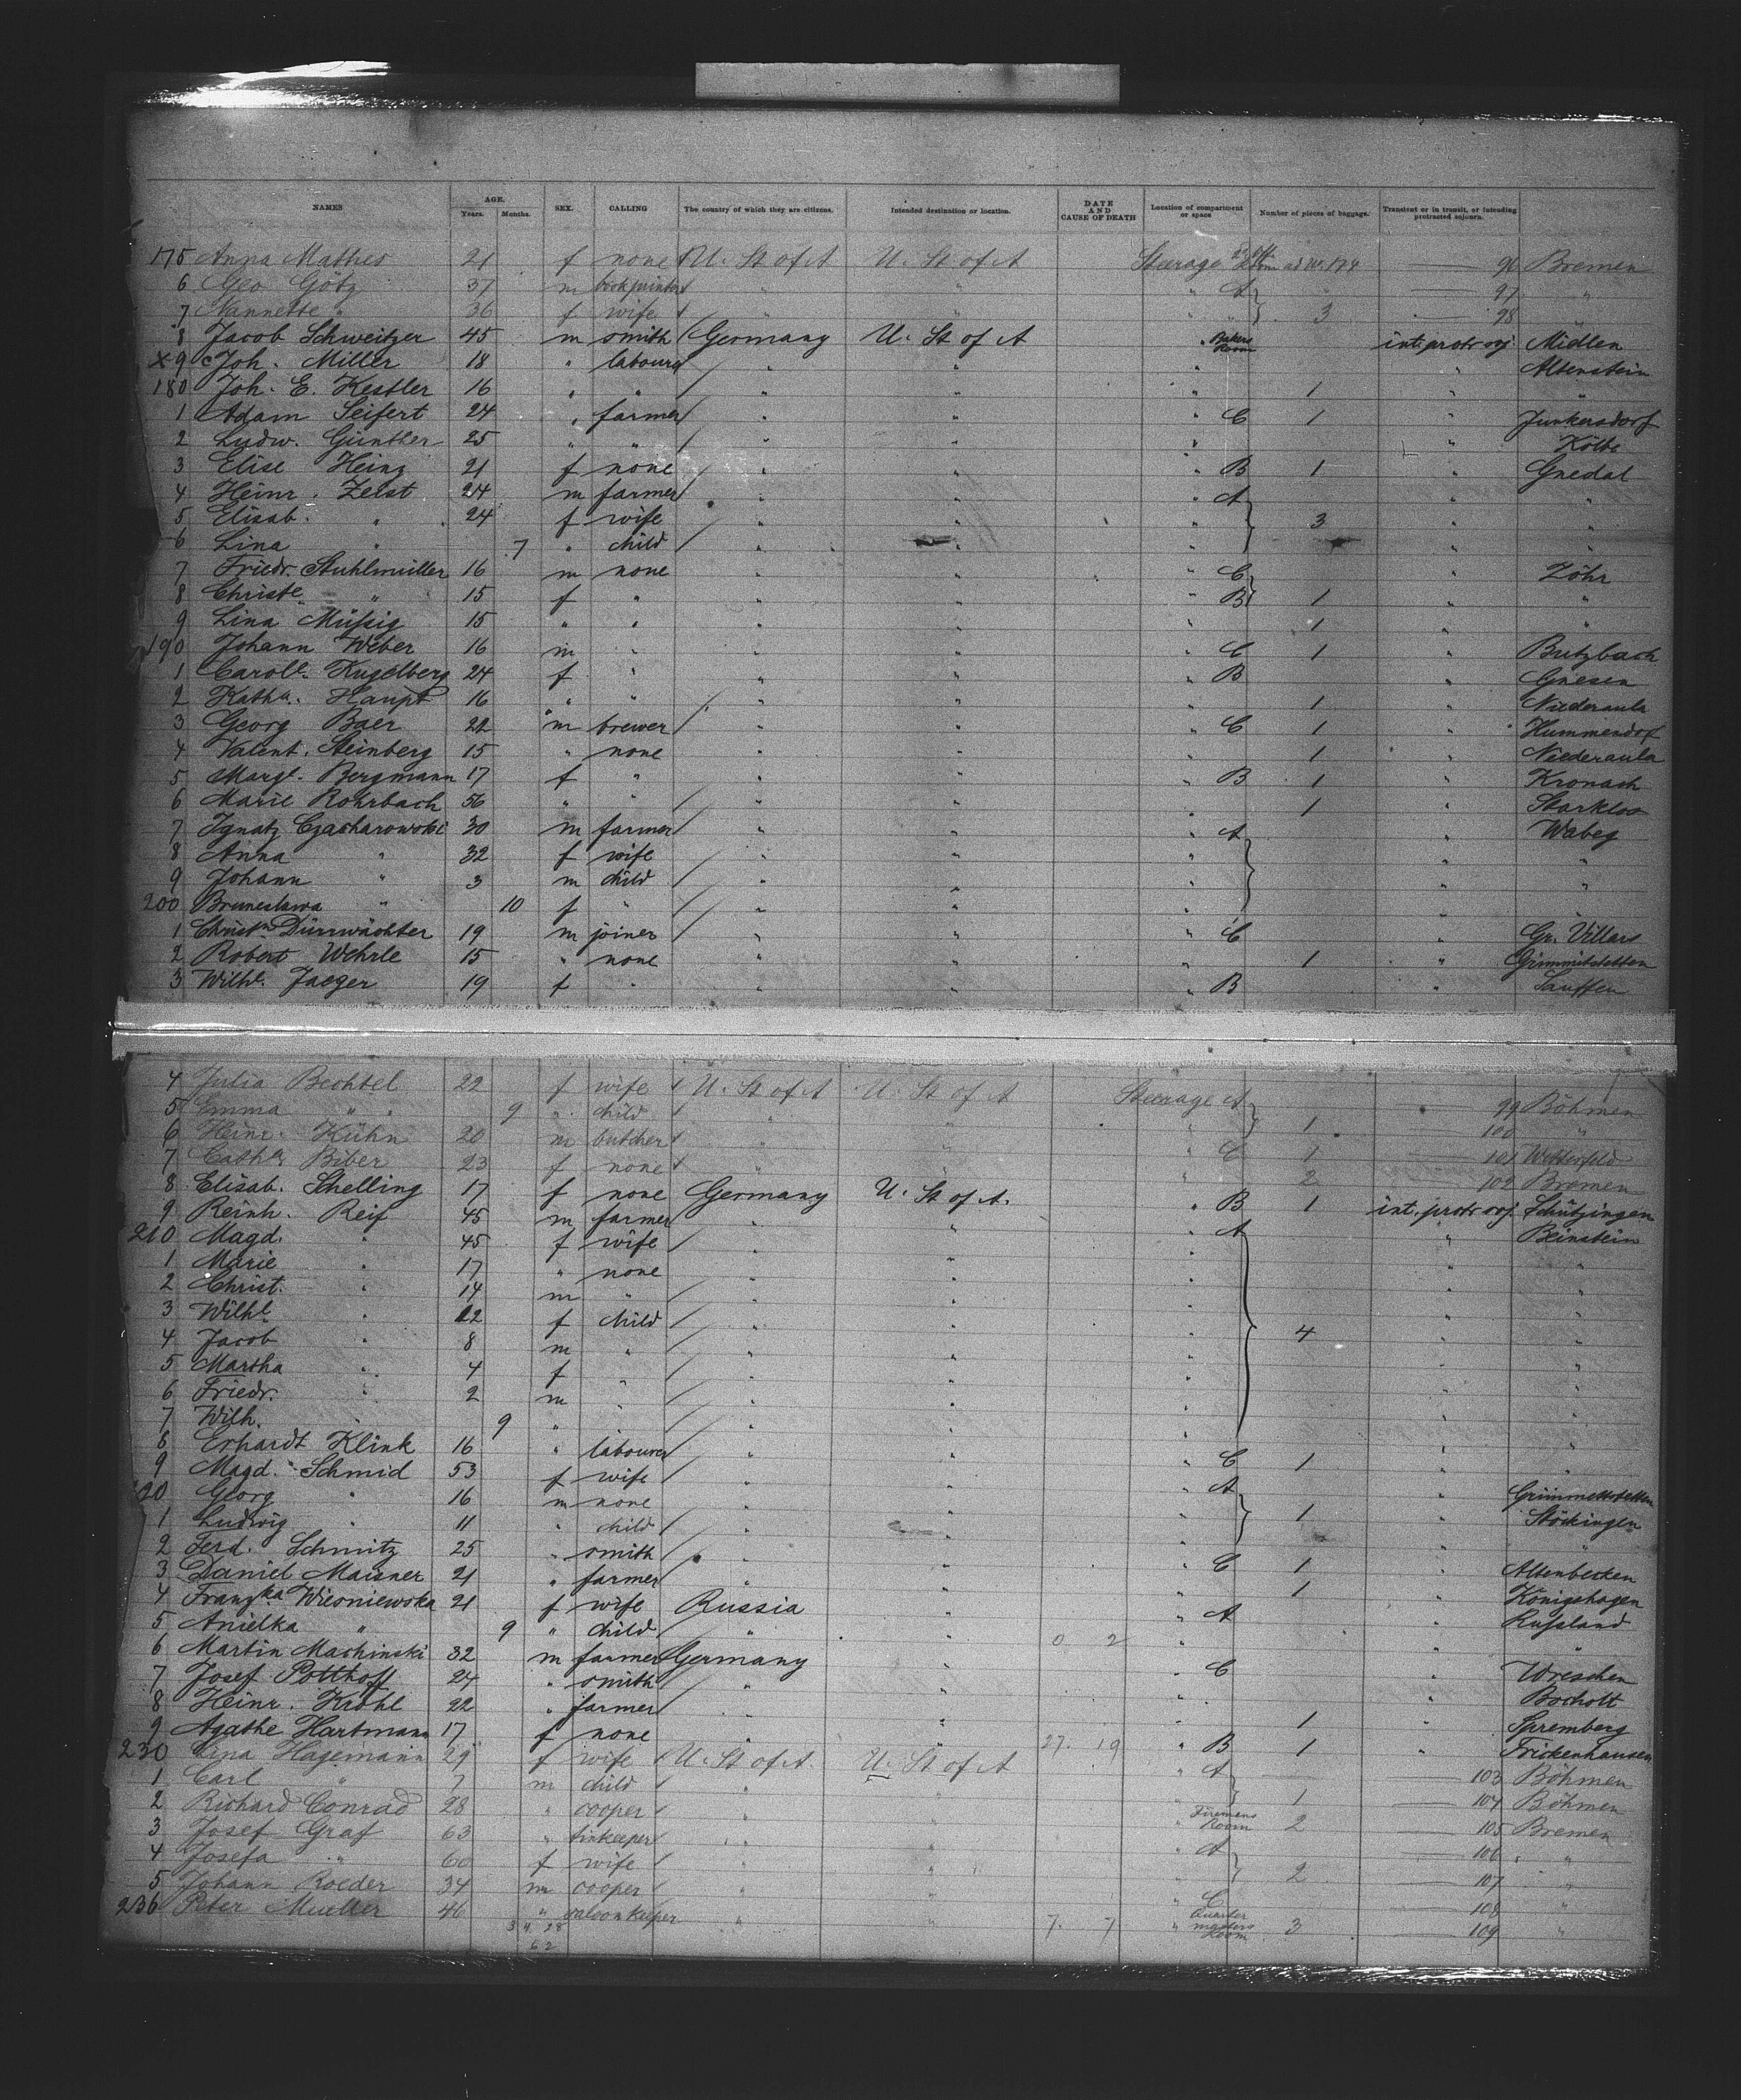 NAMES AGE. Years. Months. SEX. CALLING The country of which they are citizens. Intended destination or location. DATE AND CAUSE OF DEATH Location of compartment or space Number of pieces of baggage. Transient or in transit, or intending protracted sojourn.
175 Anna Mathes 21 f none U. St of A U. St of A Steerage 96 Bremen
6 Geo Götz 37 m bookprinter " " " A " 97 "
7 Nannette " 36 f wife " " " " 3 98 "
8 Jacob Schweitzer 45 m smith Germany U. St of A " Bakers Room int. protr soj Midlen
x9 Joh. Miller 18 " labourer " " " " Altenstein
180 Joh. E. Kestler 16 " " " " " 1 " "
1 Adam Seifert 24 " farmer " " " C 1 " Junkersdorf
2 Ludw. Günther 25 " " " " " " Kölbe
3 Elise Heinz 21 f none " " " B 1 " Gnedal
4 Heinr. Zelst 24 m farmer " " " A " "
5 Elisab. " 24 f wife " " " 3 " "
6 Lina " 7 " child " " " " "
7 Friedr. Stuhlmüller 16 m none " " " C " Löhr
8 Christe " 15 f " " " " B 1 " "
9 Lina Müßig 15 " " " " 1 " "
190 Johann Weber 16 m " " " " C 1 " Butzbach
1 Carole. Kugelberg 24 f " " " " B " Gnesen
2 Katha. Haupt 16 " " " " " 1 " Niederaula
3 Georg Baer 22 m brewer " " " C 1 " Hummendorf
4 Valent. Steinberg 15 " none " " 1 " Niederaula
5 Margt. Bergmann 17 f " " " " B 1 " Kronach
6 Marie Rohrbach 56 " " " " " 1 " Starklos
7 Ignatz Czacharowski 30 m farmer " " " A " Wabeg
8 Anna " 32 f wife " " " " "
9 Johann " 3 m child " " " " "
200 Bruneslawa " 10 f " " " " " "
1 Christn Dürrwächter 19 m joiner " " " C " Gr. Villars
2 Robert Wehrle 15 " none " " " 1 " Grimmitstetten
3 Wilhe. Jaeger 19 f " " " " B " Lauffen
4 Julia Bechtel 22 f wife U. St of A U. St of A Steerage A 99 Böhmen
5 Emma " " 9 " child " " " 1 100 "
6 Heinr. Kühn 20 m butcher " " " C 1 101 Wetterfeld
7 Catha Biber 23 f none " " " 2 102 Bremen
8 Elisab. Schelling 17 f none Germany U. St of A. " B 1 int. protr soj. Schützingen
9 Reinh. Reif 45 m farmer " " " A " Beinstein
210 Magd. " 45 f wife " " " " "
1 Marie " 17 " none " " " " "
2 Christ. " 14 m " " " " " "
3 Wilhe " 12 f child " " " " "
4 Jacob " 8 m " " " " 4 " "
5 Martha " 4 f " " " " " "
6 Friedr. " 2 m " " " " " "
7 Wilh. " 9 " " " " " " "
8 Erhardt Klink 16 " labourer " " " C 1 " "
9 Magd. Schmid 53 f wife " " " A " Grimmettstetten
220 Georg " 16 m none " " " 1 " Stöckingen
1 Ludwig " 11 " child " " " " "
2 Ferd. Schmitz 25 " smith " " " C 1 " Altenbecken
3 Daniel Maisner 21 " farmer " " " 1 " Königshagen
4 Franzka Wiesniewska 21 f wife Russia " " A " Russland
5 Anielka " 9 " child " " 0 2 " " "
6 Martin Machinski 32 m farmer Germany " " C " Wreschen
7 Josef Potthoff 24 " smith " " " " Bocholt
8 Heinr. Krohl 22 " farmer " " " 1 " Spremberg
9 Agathe Hartmann 17 f none " " 27. 19 " B 1 " Frickenhausen
230 Lina Hagemann 29 f wife U. St of A. U. St of A " A 103 Böhmen
1 Carl " 7 m child " " " 1 104 Böhmen
2 Richard Conrad 28 " cooper " " " Firemens Room 2 105 Bremen
3 Josef Graf 63 " innkeeper " " " A 106 "
4 Josefa " 60 f wife " " " 2 107 "
5 Johann Roeder 34 m cooper " " " C 108 "
236 Peter Mueller 46 " saloonkeeper " " 7. 7 " Quarter masters Room 3 109 "
3 4 28
6 2